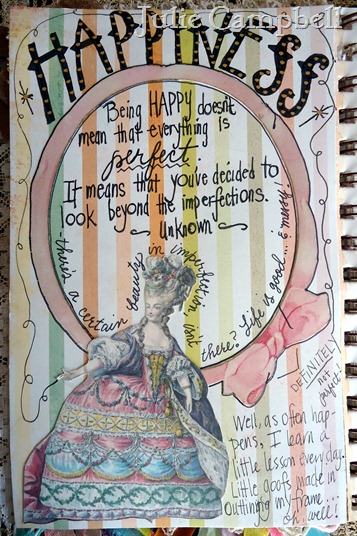 Julie Campbell
HAPPINESS
Being HAPPY doesn't
mean that everything is
perfect.
It means that you've decided to
look beyond the imperfections.
~ Unknown ~
- there's a certain beauty in imperfection, isn't there? Life is good... & messy!
DEFINITELY
not
perfect!
Well, as often hap-
pens, I learn a
little lesson every day.
Little goofs made in
cutting my frame...
oh, well!